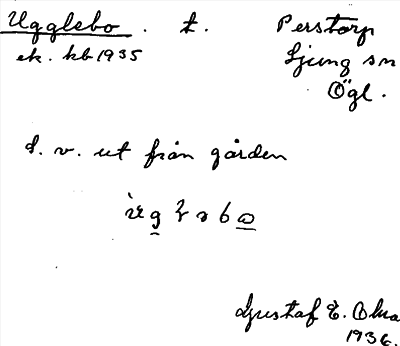 Ugglebo. t. Perstorp
ek. kb 1935 Ljung sn
Ögl.
d. v. ut från gården
Gustaf E.
1936.